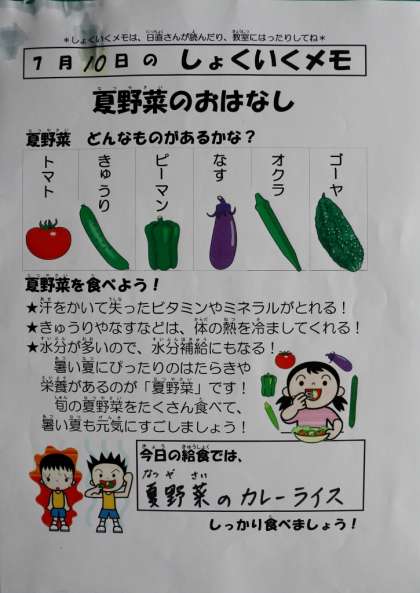 ＊しょくいくメモは、日直さんが読んだり、教室にはったりしてね＊
7月10日の しょくいくメモ
夏野菜のおはなし
夏野菜 どんなものがあるかな？
トマト
きゅうり
ピーマン
なす
オクラ
ゴーヤ
夏野菜を食べよう！
★汗をかいて失ったビタミンやミネラルがとれる！
★きゅうりやなすなどは、体の熱を冷ましてくれる！
★水分が多いので、水分補給にもなる！
暑い夏にぴったりのはたらきや
栄養があるのが「夏野菜」です！
旬の夏野菜をたくさん食べて、
暑い夏も元気にすごしましょう！
今日の給食では、
夏野菜のカレーライス
しっかり食べましょう！